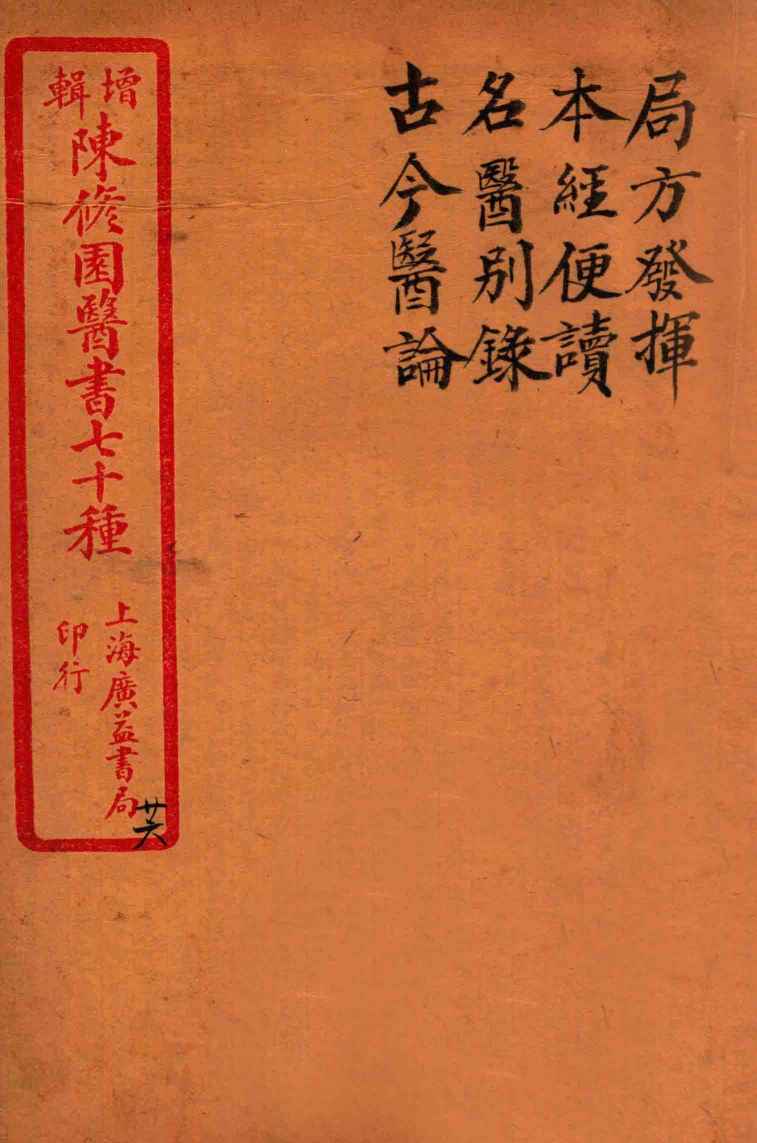 局方發揮
本經便讀
名醫別錄
古今醫論
增輯
陳修園醫書七十種
上海廣益書局
印行
廿六